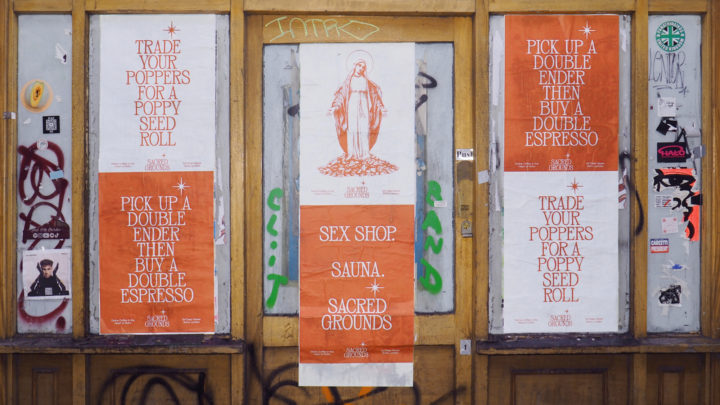 INTRO
TRADE
YOUR
POPPERS
FOR A
POPPY
SEED
ROLL
SACRED
GROUNDS
PICK UP A
DOUBLE
ENDER
THEN
BUY A
DOUBLE
ESPRESSO
SACRED
GROUNDS
SACRED
GROUNDS
SEX SHOP.
SAUNA.
SACRED
GROUNDS
SACRED
GROUNDS
Push
PICK UP A
DOUBLE
ENDER
THEN
BUY A
DOUBLE
ESPRESSO
SACRED
GROUNDS
TRADE
YOUR
POPPERS
FOR A
POPPY
SEED
ROLL
SACRED
GROUNDS
HALO